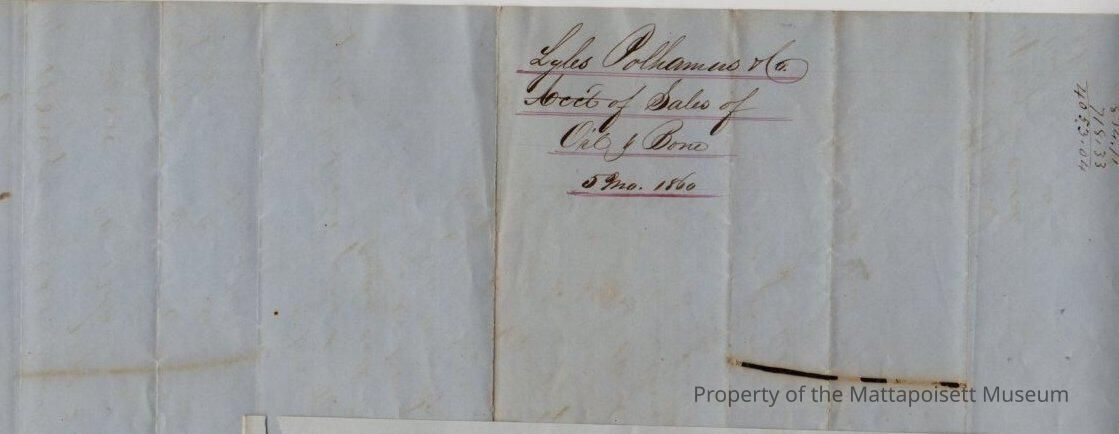 Lyles Polhamus & Co.
Acct of Sales of
Oil & Bone
5 Mo. 1860
718.33
4053.04
Property of the Mattapoisett Museum